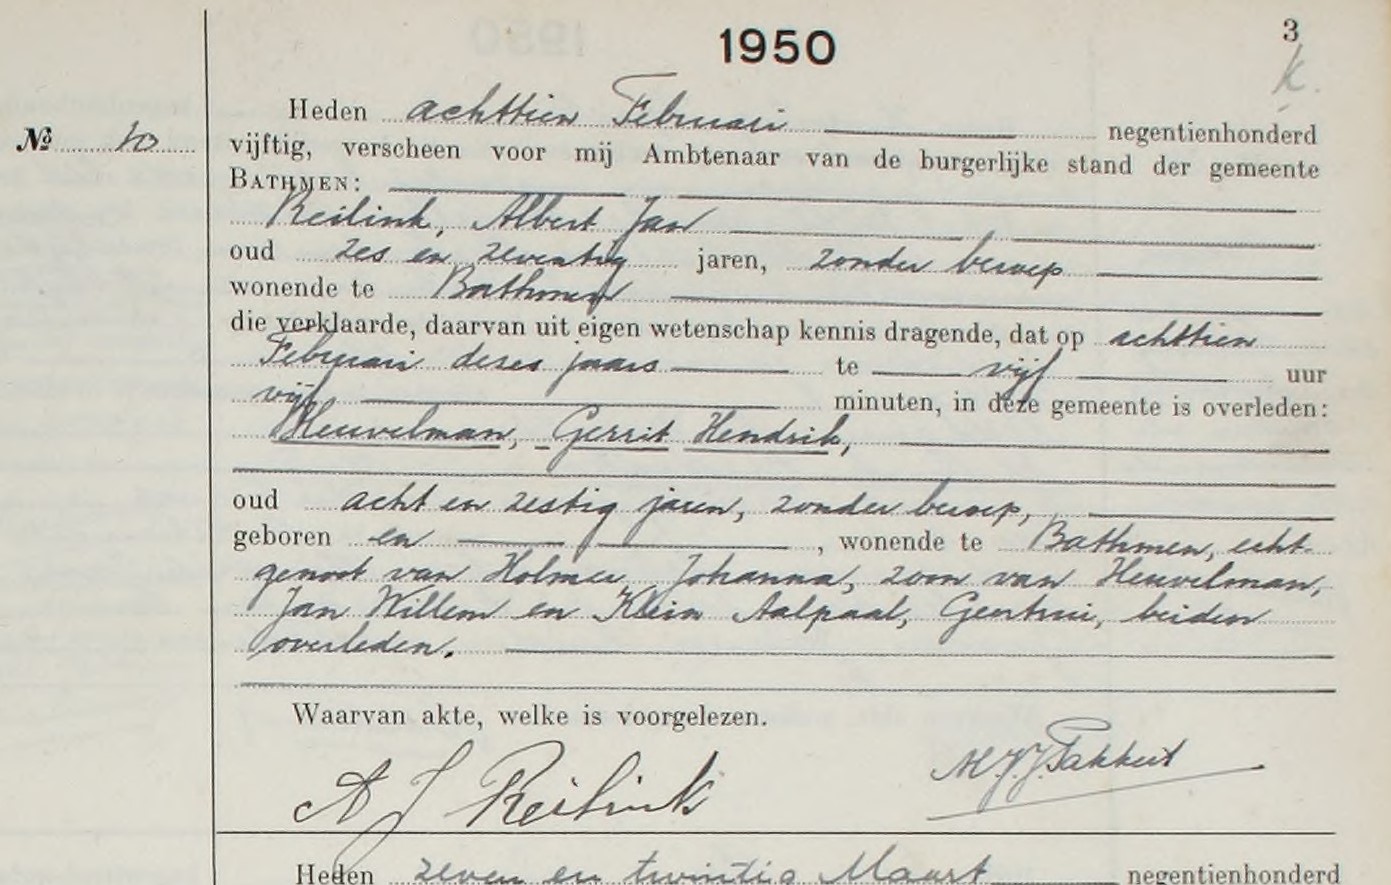 1950
3
k.
Heden achttien Februari negentienhonderd
№ 10
vijftig, verscheen voor mij Ambtenaar van de burgerlijke stand der gemeente
BATHMEN:
Reilink, Albert Jan
oud zes en zeventig jaren, zonder beroep
wonende te Bathmen
die verklaarde, daarvan uit eigen wetenschap kennis dragende, dat op achttien
Februari dezes jaars te vijf uur
vijf minuten, in deze gemeente is overleden:
Heuvelman, Gerrit Hendrik,
oud acht en zestig jaren, zonder beroep,
geboren en , wonende te Bathmen, echt-
genoot van Holmer Johanna, zoon van Heuvelman,
Jan Willem en Klein Aalpaal, Gerritui, beiden
overleden.
Waarvan akte, welke is voorgelezen.
A J Reilink
Heden zeven en twintig Maart negentienhonderd